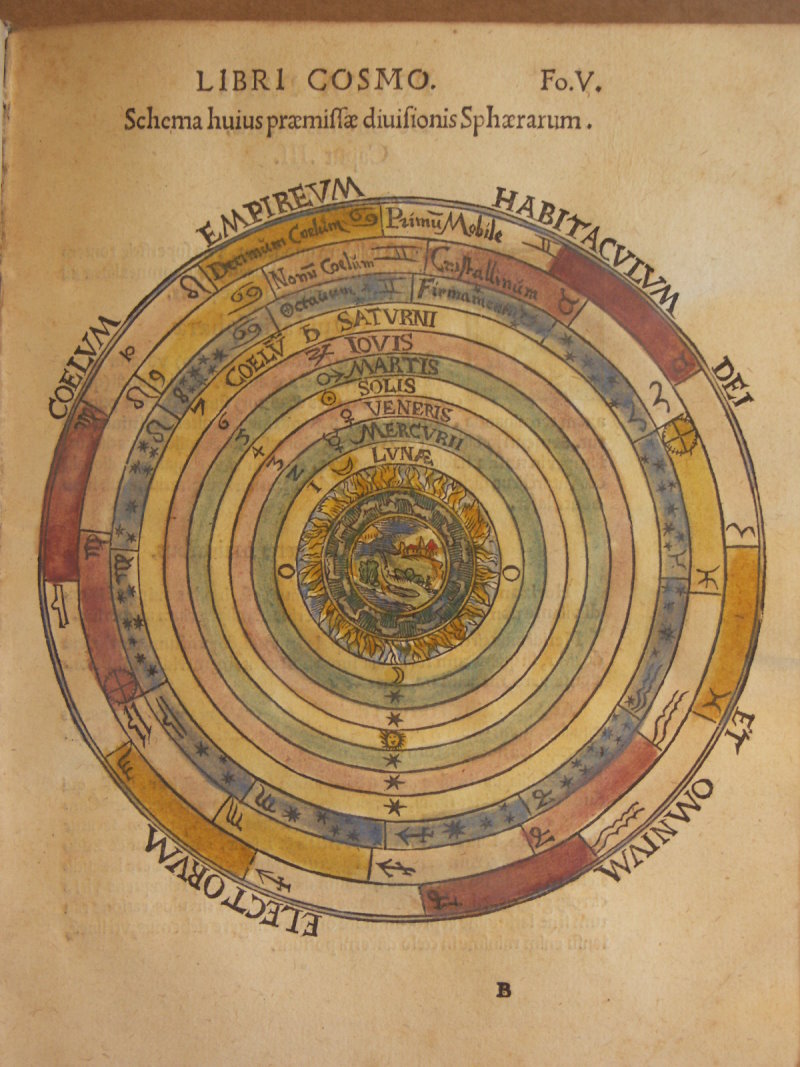 LIBRI COSMO. Fo.V.
Schema huius præmissæ diuisionis Sphærarum.
COELVM EMPIREVM HABITACVLVM DEI ET OMNIVM ELECTORVM
Decimum Coelum Primū Mobile
Nonū Coelum Cristallinum
Octauum Firmamentum
7 COELV̄ ♄ SATVRNI
6 ♃ IOVIS
5 ♂ MARTIS
4 ☉ SOLIS
3 ♀ VENERIS
2 ☿ MERCVRII
1 ☽ LVNÆ
B